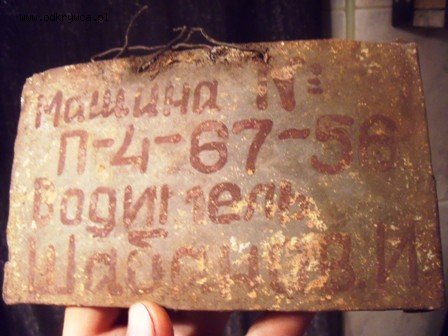 www.odkrywca.pl
Машина №
П-4-67-56
Водитель
Шабанов.И